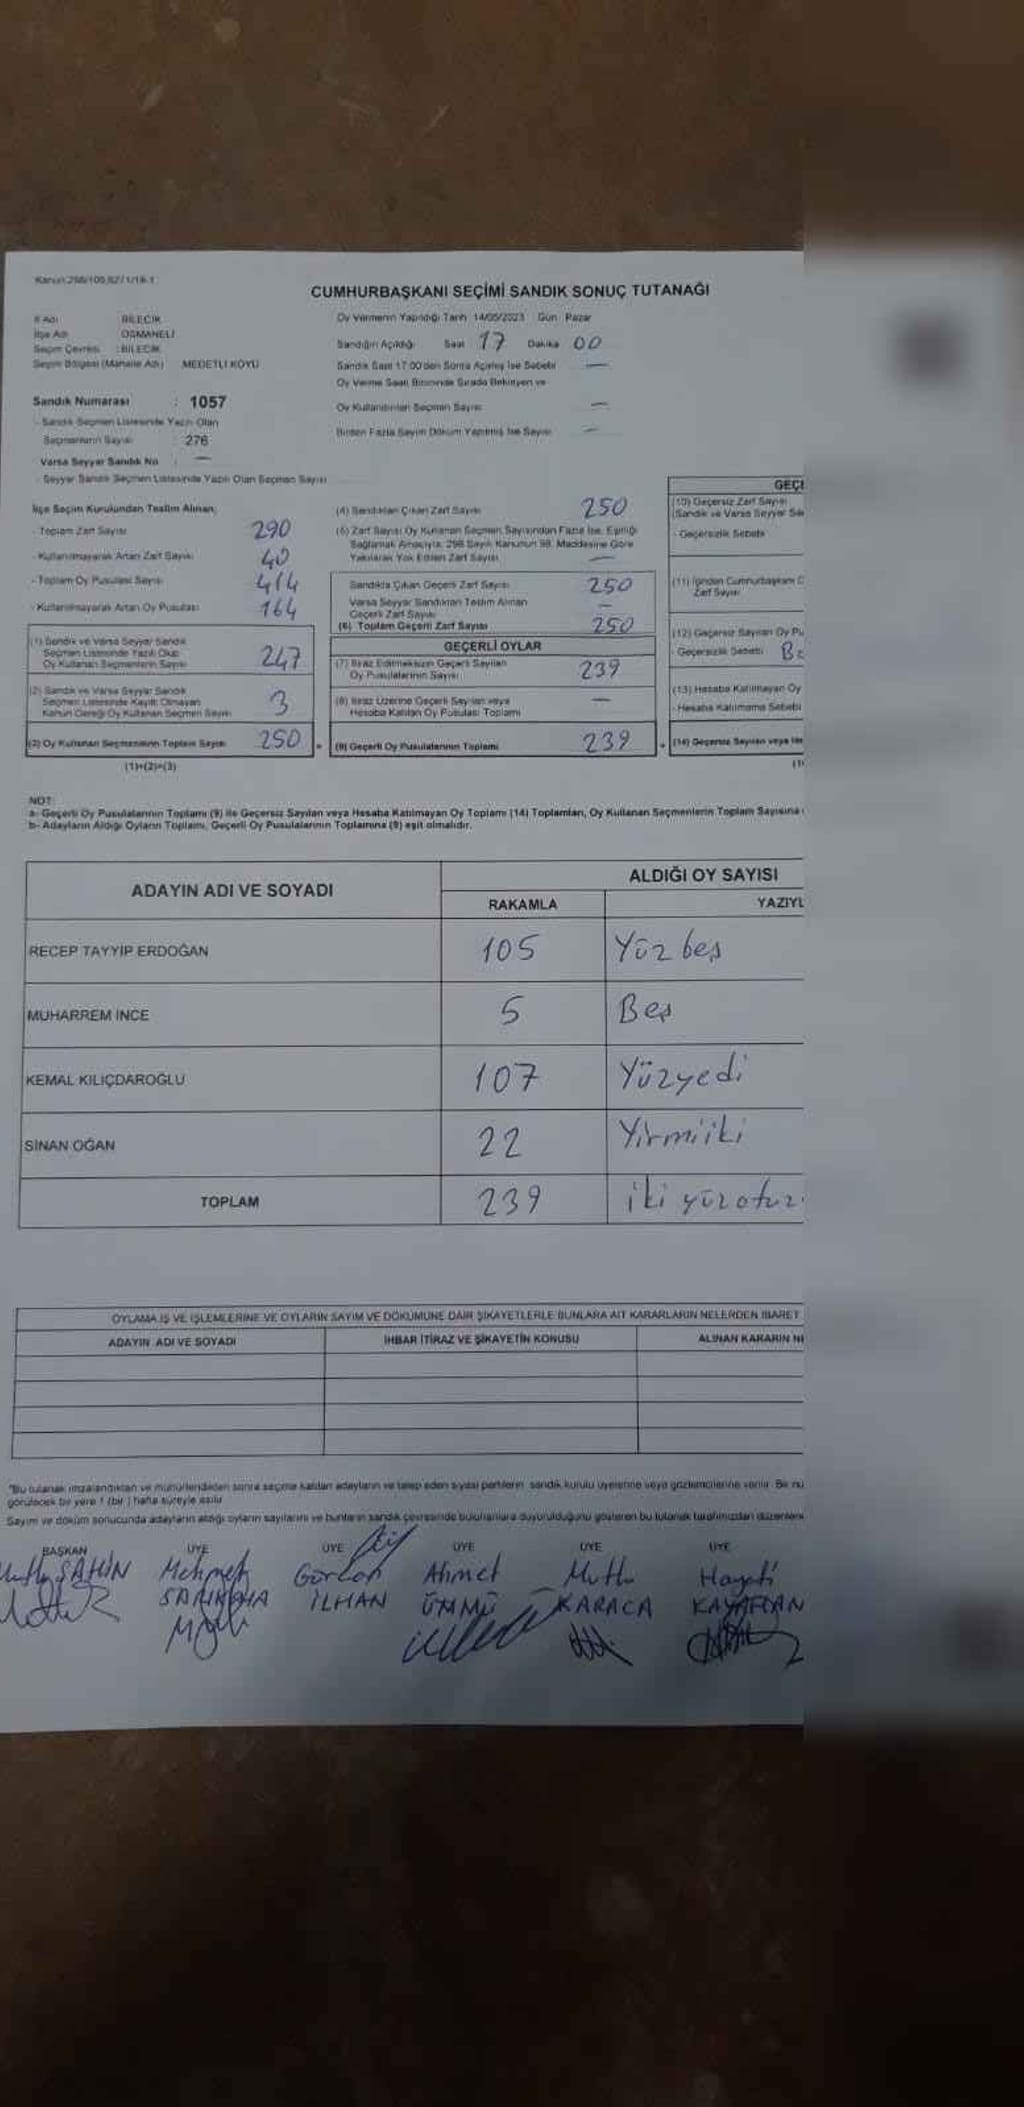 Kanun:298/105,6271/19-1
CUMHURBAŞKANI SEÇİMİ SANDIK SONUÇ TUTANAĞI
İl Adı : BİLECİK
İlçe Adı : OSMANELİ
Seçim Çevresi : BİLECİK
Seçim Bölgesi (Mahalle Adı) : MEDETLİ KÖYÜ
Oy Vermenin Yapıldığı Tarih 14/05/2023 Gün Pazar
Sandığın Açıldığı Saat 17 Dakika 00
Sandık Saat 17:00'den Sonra Açılmış İse Sebebi —
Oy Verme Saati Bitiminde Sırada Bekleyen ve
Oy Kullandırılan Seçmen Sayısı —
Birden Fazla Sayım Döküm Yapılmış İse Sayısı —
Sandık Numarası : 1057
- Sandık Seçmen Listesinde Yazılı Olan
Seçmenlerin Sayısı : 276
Varsa Seyyar Sandık No : —
- Seyyar Sandık Seçmen Listesinde Yazılı Olan Seçmen Sayısı
İlçe Seçim Kurulundan Teslim Alınan;
- Toplam Zarf Sayısı 290
- Kullanılmayarak Artan Zarf Sayısı 40
- Toplam Oy Pusulası Sayısı 414
- Kullanılmayarak Artan Oy Pusulası 164
(1) Sandık ve Varsa Seyyar Sandık
Seçmen Listesinde Yazılı Olup
Oy Kullanan Seçmenlerin Sayısı 247
(2) Sandık ve Varsa Seyyar Sandık
Seçmen Listesinde Kayıtlı Olmayan
Kanun Gereği Oy Kullanan Seçmen Sayısı 3
(3) Oy Kullanan Seçmenlerin Toplam Sayısı 250
(1)+(2)=(3)
(4) Sandıktan Çıkan Zarf Sayısı 250
(5) Zarf Sayısı Oy Kullanan Seçmen Sayısından Fazla İse, Eşitliği
Sağlamak Amacıyla, 298 Sayılı Kanunun 98. Maddesine Göre
Yakılarak Yok Edilen Zarf Sayısı —
Sandıkta Çıkan Geçerli Zarf Sayısı 250
Varsa Seyyar Sandıktan Teslim Alınan
Geçerli Zarf Sayısı —
(6) Toplam Geçerli Zarf Sayısı 250
GEÇERLİ OYLAR
(7) İtiraz Edilmeksizin Geçerli Sayılan
Oy Pusulalarının Sayısı 239
(8) İtiraz Üzerine Geçerli Sayılan veya
Hesaba Katılan Oy Pusulası Toplamı —
(9) Geçerli Oy Pusulalarının Toplamı 239
(10) Geçersiz Zarf Sayısı
(Sandık ve Varsa Seyyar
- Geçersizlik Sebebi
(11) İçinden Cumhurbaşkanı
Zarf Sayısı
(12) Geçersiz Sayılan Oy
- Geçersizlik Sebebi
(13) Hesaba Katılmayan Oy
- Hesaba Katılmama Sebebi
(14) Geçersiz Sayılan veya
NOT:
a- Geçerli Oy Pusulalarının Toplamı (9) ile Geçersiz Sayılan veya Hesaba Katılmayan Oy Toplamı (14) Toplamları, Oy Kullanan Seçmenlerin Toplam Sayısına
b- Adayların Aldığı Oyların Toplamı, Geçerli Oy Pusulalarının Toplamına (9) eşit olmalıdır.
ADAYIN ADI VE SOYADI ALDIĞI OY SAYISI
RAKAMLA
RECEP TAYYİP ERDOĞAN 105 Yüz beş
MUHARREM İNCE 5 Beş
KEMAL KILIÇDAROĞLU 107 Yüzyedi
SİNAN OĞAN 22 Yirmiiki
TOPLAM 239 iki yüz otuz
OYLAMA İŞ VE İŞLEMLERİNE VE OYLARIN SAYIM VE DÖKÜMÜNE DAİR ŞİKAYETLERLE BUNLARA AİT KARARLARIN NELERDEN İBARET
ADAYIN ADI VE SOYADI İHBAR İTİRAZ VE ŞİKAYETİN KONUSU ALINAN KARARIN
"Bu tutanak imzalandıktan ve mühürlendikten sonra seçime katılan adayların ve talep eden siyasi partilerin sandık kurulu üyelerine veya gözlemcilerine verilir. Bir
görülecek bir yere 1 (bir) hafta süreyle asılır.
Sayım ve döküm sonucunda adayların aldığı oyların sayılarını ve bunların sandık çevresinde bulunanlara duyurulduğunu gösteren bu tutanak tarafımızdan
BAŞKAN ÜYE ÜYE ÜYE ÜYE ÜYE
ŞAHİN Mehmet Gürcan Ahmet Mutlu Hayati
SARIKAYA İLHAN ÜMMÜ KARACA